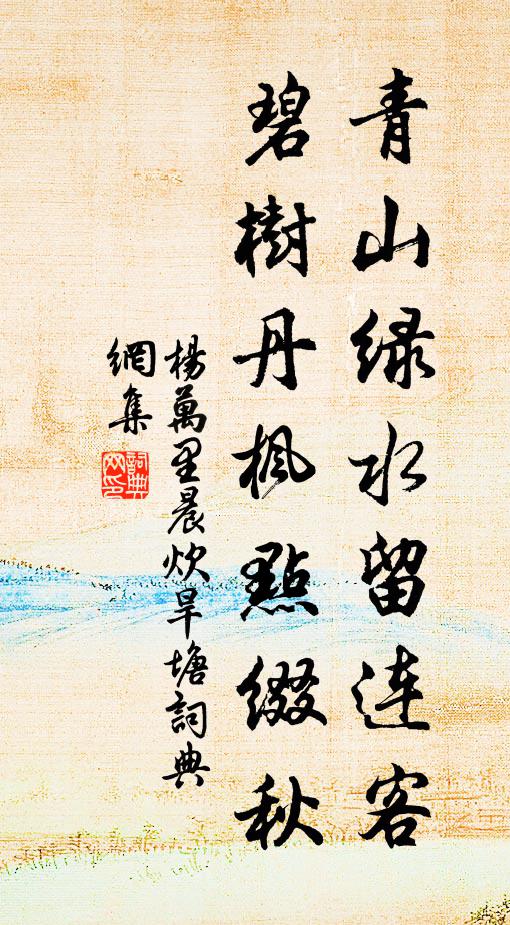 青山緑水留连客
碧樹丹楓點綴秋
楊萬里晨炊旱塘詞典
網集
詞典
网印